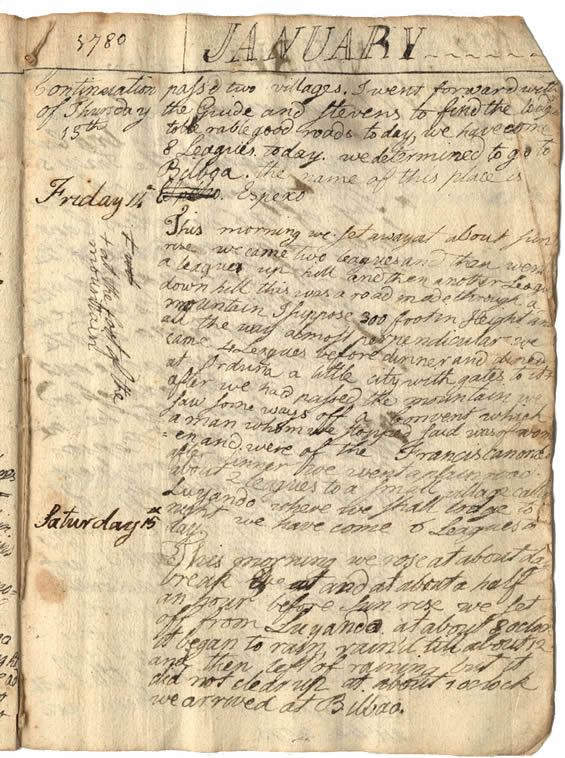 1780 JANUARY
Continuation pass'd two villages. I went forward with
of Thursday the Guide and Stevens to find the
13th tolerable good roads today, we have come
8 Leagues today. we determined to go to
Bilboa. the name of this place is
Friday 14th Espexo
This morning we set away at about sun
rise we came two leagues and then went
a league up hill and then another League
down hill this was a road made through a
mountain I suppose 300 foot in Height and
all the way almost perpendicular we
came 4 Leagues before dinner and dined
at Orduna a little city with gates to it
after we had passed the mountain we
saw some ways off a Convent which
a man whom we said was of wom
=en and were of the Franciscan
after dinner we went a fair road
about 2 leagues to a small village
Luyando where we shall lodge to
night we have come 6 Leagues
day
+ at the foot of the
mountain
Saturday 15th
This morning we rose at about da
break and at about a half
an hour before sun rise we set
off from Luyando. at about 8 oclock
it began to rain, rain'd till about 12
and then left of raining but it
did not clear up at about 1 oclock
we arrived at Bilbao.